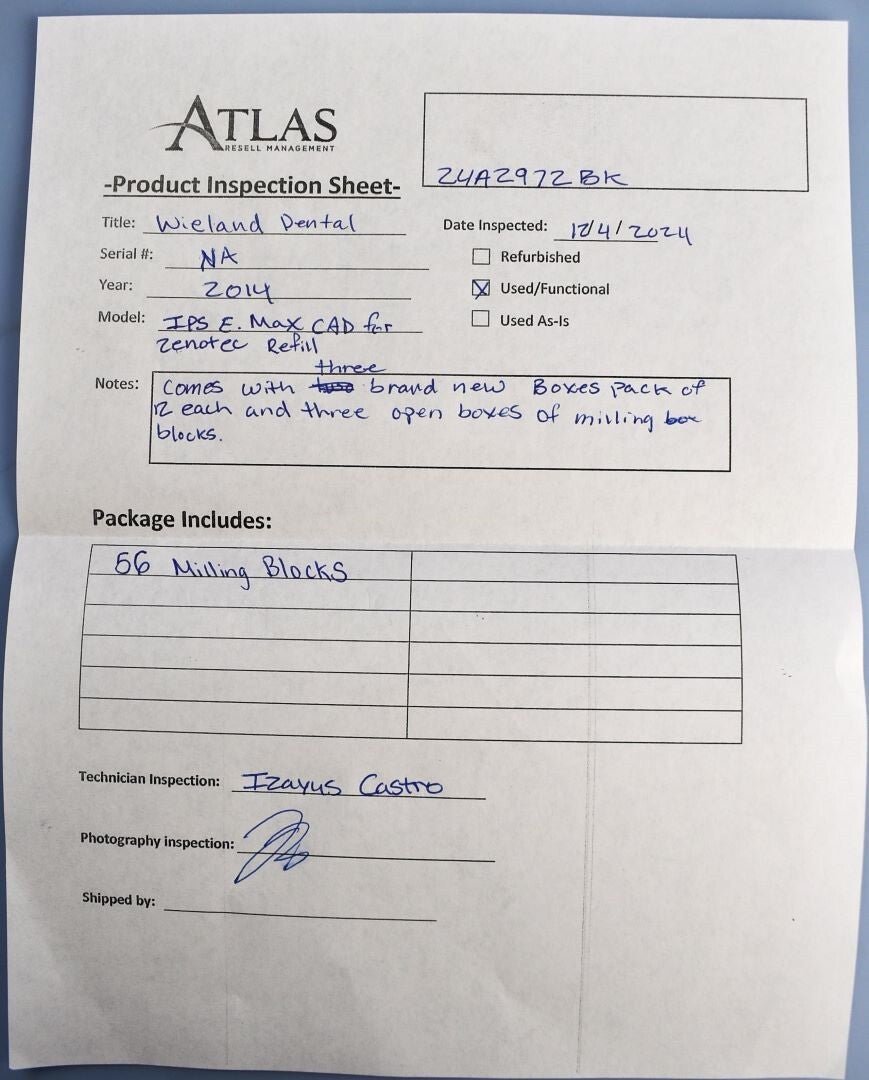 ATLAS
RESELL MANAGEMENT
24A2972BK
-Product Inspection Sheet-
Title: Wieland Dental
Date Inspected: 12/4/2024
Serial #: NA
Refurbished
Year: 2014
Used/Functional
Model: IPS E. Max CAD for
Used As-Is
Zenotec Refill
three
Notes: Comes with two brand new Boxes pack of
12 each and three open boxes of milling box
blocks.
Package Includes:
56 Milling Blocks
Technician Inspection: Izayus Castro
Photography inspection:
Shipped by: